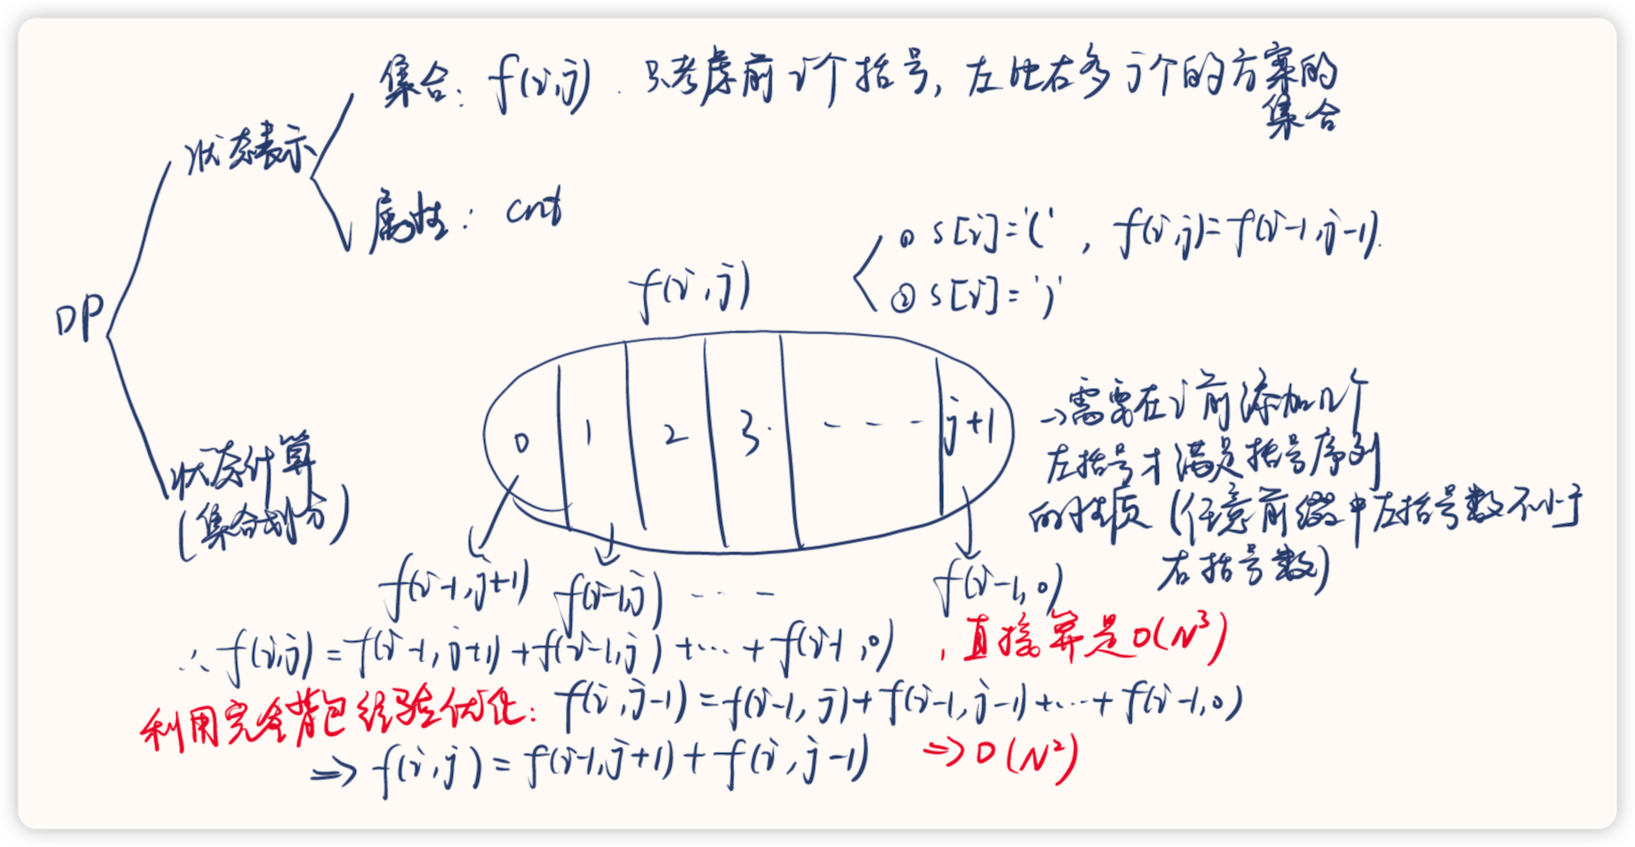 集合: f(i,j) . 只考虑前i个括号, 左比右多j个的方案的
集合
状态表示
属性: cnt
① s[i]='(' , f(i,j)=f(i-1,j-1).
② s[i]=')'
f(i,j)
DP
0 1 2 3. - - - - j+1
→需要在i前添加几个
左括号才满足括号序列
的性质 (任意前缀中左括号数不小于
右括号数)
状态计算
(集合划分)
f(i-1,j+1) f(i-1,j) - - - - f(i-1,0)
∴ f(i,j)=f(i-1,j+1)+f(i-1,j)+...+f(i-1,0) , 直接算是O(N³)
利用完全背包经验优化: f(i,j-1)=f(i-1,j)+f(i-1,j-1)+...+f(i-1,0)
=> f(i,j)=f(i-1,j+1)+f(i,j-1) => O(N²)